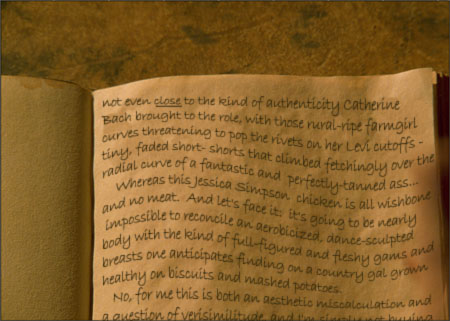 not even close to the kind of authenticity Catherine
Bach brought to the role, with those rural-ripe farmgirl
curves threatening to pop the rivets on her Levi cutoffs -
tiny, faded short-shorts that climbed fetchingly over the
radial curve of a fantastic and perfectly-tanned ass...
Whereas this Jessica Simpson chicken is all wishbone
and no meat. And let's face it: it's going to be nearly
impossible to reconcile an aerobicized, dance-sculpted
body with the kind of full-figured and fleshy gams and
breasts one anticipates finding on a country gal grown
healthy on biscuits and mashed potatoes.
No, for me this is both an aesthetic miscalculation and
a question of verisimilitude, and I'm simply not buying